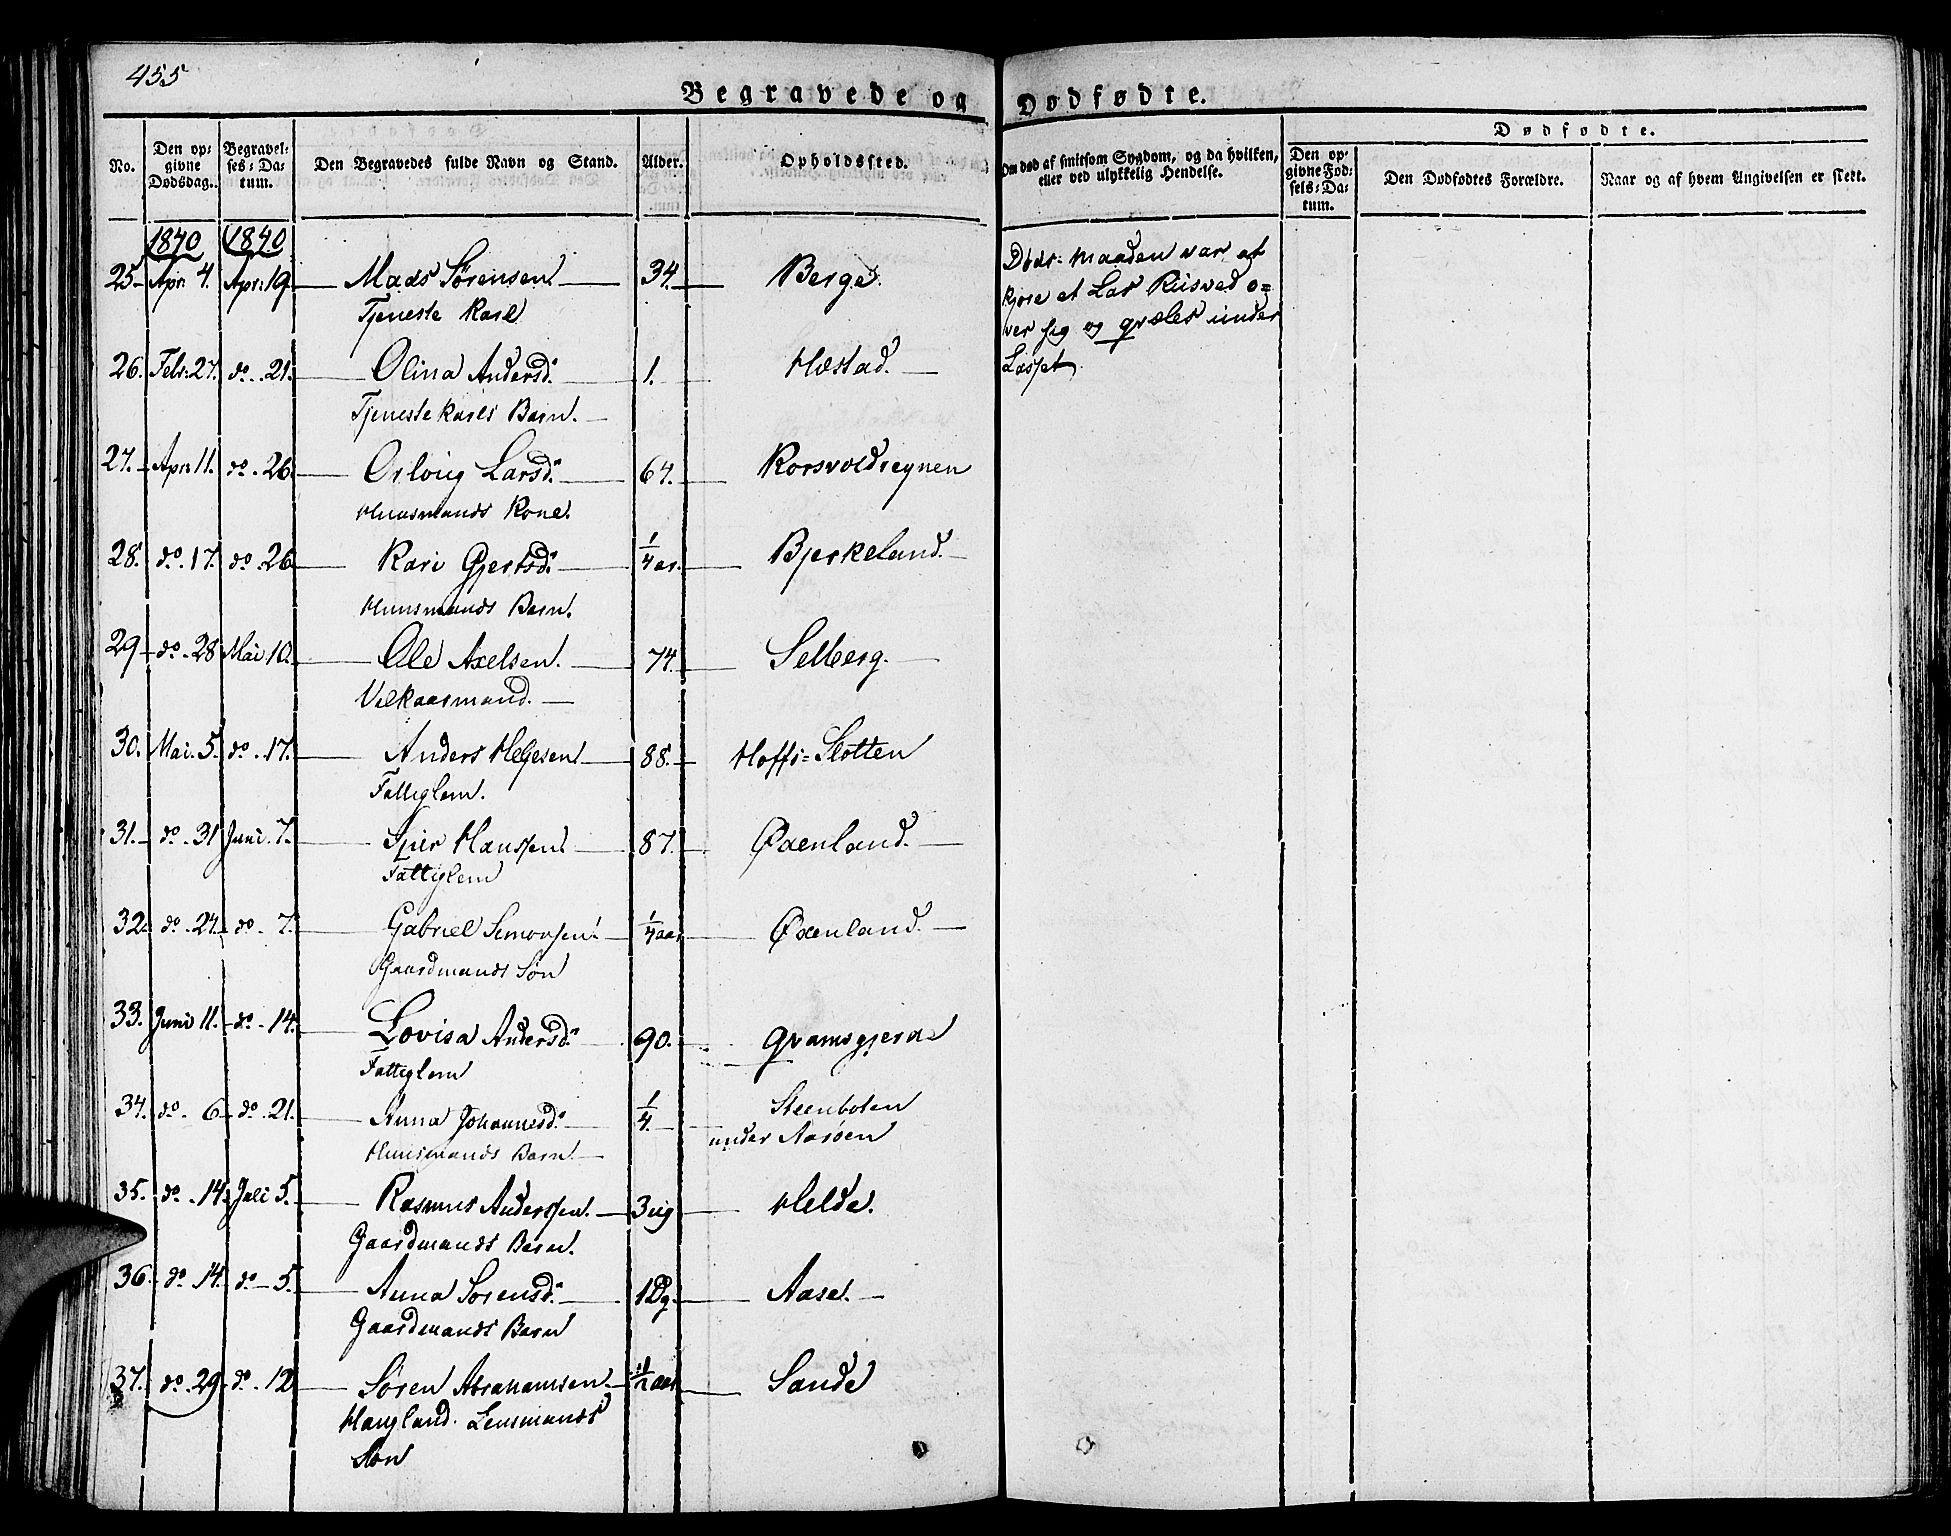 455
Begravede og Dødfødte.
No.
Den opgivne Dødsdag.
Begravelses-Datum.
Den Begravedes fulde Navn og Stand.
Alder.
Opholdssted.
Om død af smitsom Sygdom, og da hvilken, eller ved ulykkelig Hendelse.
Dødfødte.
Den opgivne Fødsels-Datum.
Den Dødfødtes Forældre.
Naar og af hvem Angivelsen er skett.
1840 1840
25 Apr: 4. Apr: 19. Mads Sørensen 34. Berge.
Tjeneste Karl
Døds-maaden var at
kjøre et Las Riisved o=
ver sig og qvæles under
Lasset
26. Feb: 27. do. 21. Olina Andersd. 1. Hæstad.
Tjeneste Karls Barn.
27. Apr: 11. do. 26. Larsd. 64. Korsvoldseynen
Huusmands Kone.
28. do. 17. do. 26 Kari Gjertsd. 1/4 ar. Bjerkeland.
Huusmands Barn.
29 do. 28 Mai 10. Ole Axelsen. 74. Selberg.
Velkaarmand.
30. Mai. 5. do. 17. Anders Helgesen 88. Hoffs=Slotten
Fattiglem.
31. do. 31 Juni. 7. Hanssen 87. Øxenland.
Fattiglem
32. do. 24. do. 7. Gabriel Simonsen 1/4 aar Øxenland.
Gaardmands Søn
33. Juni 11. do. 14. Lovisa Andersd. 90. Qvamsgjerd
Fattiglem
34. do. 6 do. 21. Anna Johannesd. 1/4. Steenboten
under Aarøen
Huusmands Barn
35. do. 14. Juli 5. Rasmus Anderssen. 3 ug Helde.
Gaardmands Barn.
36. do. 14. do. 5. Anna Sørensd. 1 Dg. Aase.
Gaardmands Barn
37. do. 29 do. 12 Søren Abrahamsen 1/2 aar Sande
Haugland. Lensmands
Søn